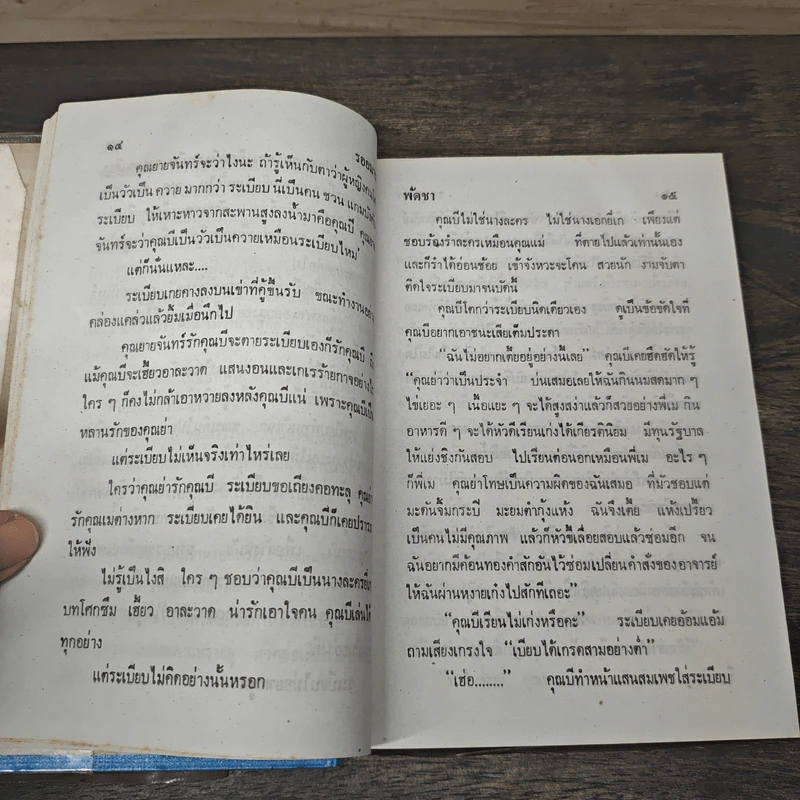 ๑๔
คุณยายจันทร์จะว่าไงนะ ถ้ารู้เห็นกับตาว่าผู้หญิง
เป็นวัวเป็น ควาย มากกว่า ระเบียบ นี่เป็นคน ชวน
ระเบียบ ให้เหาะหาวจากสะพานสูงลงน้ำมาคือคุณบี
จันทร์จะว่าคุณบีเป็นวัวเป็นควายเหมือนระเบียบไหม
แต่ก็นั่นแหละ....
ระเบียบเกยคางลงบนเข่าที่คู้ขึ้นรับ ขณะทำงาน
คล่องแคล่วแล้วยิ้มเมื่อนึกไป
คุณยายจันทร์รักคุณบีจะตายระเบียบเองก็รักคุณบี
แม้คุณบีจะเฮี้ยวอาละวาด แสนงอนและเกเรร้ายกาจ
ใคร ๆ ก็คงไม่กล้าเอาหวายลงหลังคุณบีแน่ เพราะคุณบี
หลานรักของคุณย่า
แต่ระเบียบไม่เห็นจริงเท่าไหร่เลย
ใครว่าคุณย่ารักคุณบี ระเบียบขอเถียงคอทะลุ
รักคุณเมต่างหาก ระเบียบเคยได้ยิน และคุณบีก็เคย
ให้ฟัง
ไม่รู้เป็นไงสิ ใคร ๆ ชอบว่าคุณบีเป็นนางละคร
บทโศกซึม เฮี้ยว อาละวาด น่ารักเอาใจคน คุณบีเล่นได้
ทุกอย่าง
แต่ระเบียบไม่คิดอย่างนั้นหรอก
พัดชา ๑๕
คุณบีไม่ใช่นางละคร ไม่ใช่นางเอกยี่เก เพียงแต่
ชอบร้องรำละครเหมือนคุณแม่ ที่ตายไปแล้วเท่านั้นเอง
และก็รำได้อ่อนช้อย เข้าจังหวะจะโคน สวยนัก งามจับตา
ติดใจระเบียบมาจนบัดนี้
คุณบีโตกว่าระเบียบนิดเดียวเอง ดูเป็นข้อขัดใจที่
คุณบีอยากเอาชนะเสียเต็มประดา
“ฉันไม่อยากเตี้ยอยู่อย่างนี้เลย” คุณบีเคยฮึดฮัดให้รู้
“คุณย่าว่าเป็นประจำ บ่นเสมอเลยให้ฉันกินนมสดมาก ๆ
ไข่เยอะ ๆ เนื้อแยะ ๆ จะได้สูงสง่าแล้วก็สวยอย่างพี่เม กิน
อาหารดี ๆ จะได้หัวดีเรียนเก่งได้เกียรตินิยม มีทุนรัฐบาล
ให้แย่งชิงกันสอบ ไปเรียนต่อนอกเหมือนพี่เม อะไร ๆ
ก็พี่เม คุณย่าโทษเป็นความผิดของฉันเสมอ ที่มัวชอบแต่
มะดันจิ้มกะปิ มะยมตำกุ้งแห้ง ฉันจึงเตี้ย แห้งเปรี้ยว
เป็นคนไม่มีคุณภาพ แล้วก็หัวขี้เลื่อยสอบแล้วซ่อมอีก จน
ฉันอยากมีค้อนทองคำสักอันไว้ซ่อมเปลี่ยนคำสั่งของอาจารย์
ให้ฉันผ่านหงายเก๋งไปสักทีเถอะ”
“คุณบีเรียนไม่เก่งหรือคะ” ระเบียบเคยอ้อมแอ้ม
ถามเสียงเกรงใจ “เบียบได้เกรดสามอย่างต่ำ”
“เฮ่อ........” คุณบีทำหน้าแสนสมเพชใส่ระเบียบ